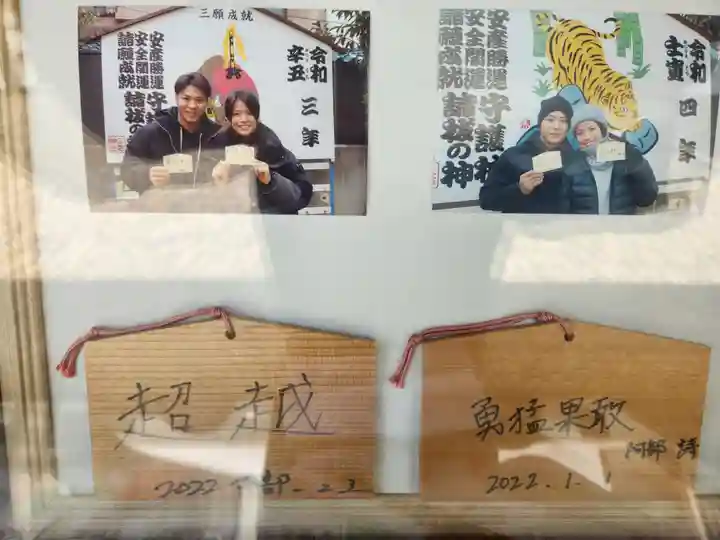 三願成就
令和三年
辛丑
安産勝運
安全開運
諸願成就
守護
諸坂の神
令和四年
壬寅
安産勝運
安全開運
諸願成就
守護
諸坂の神
超越
2022
勇猛果敢
阿部 詩
2022.1.1